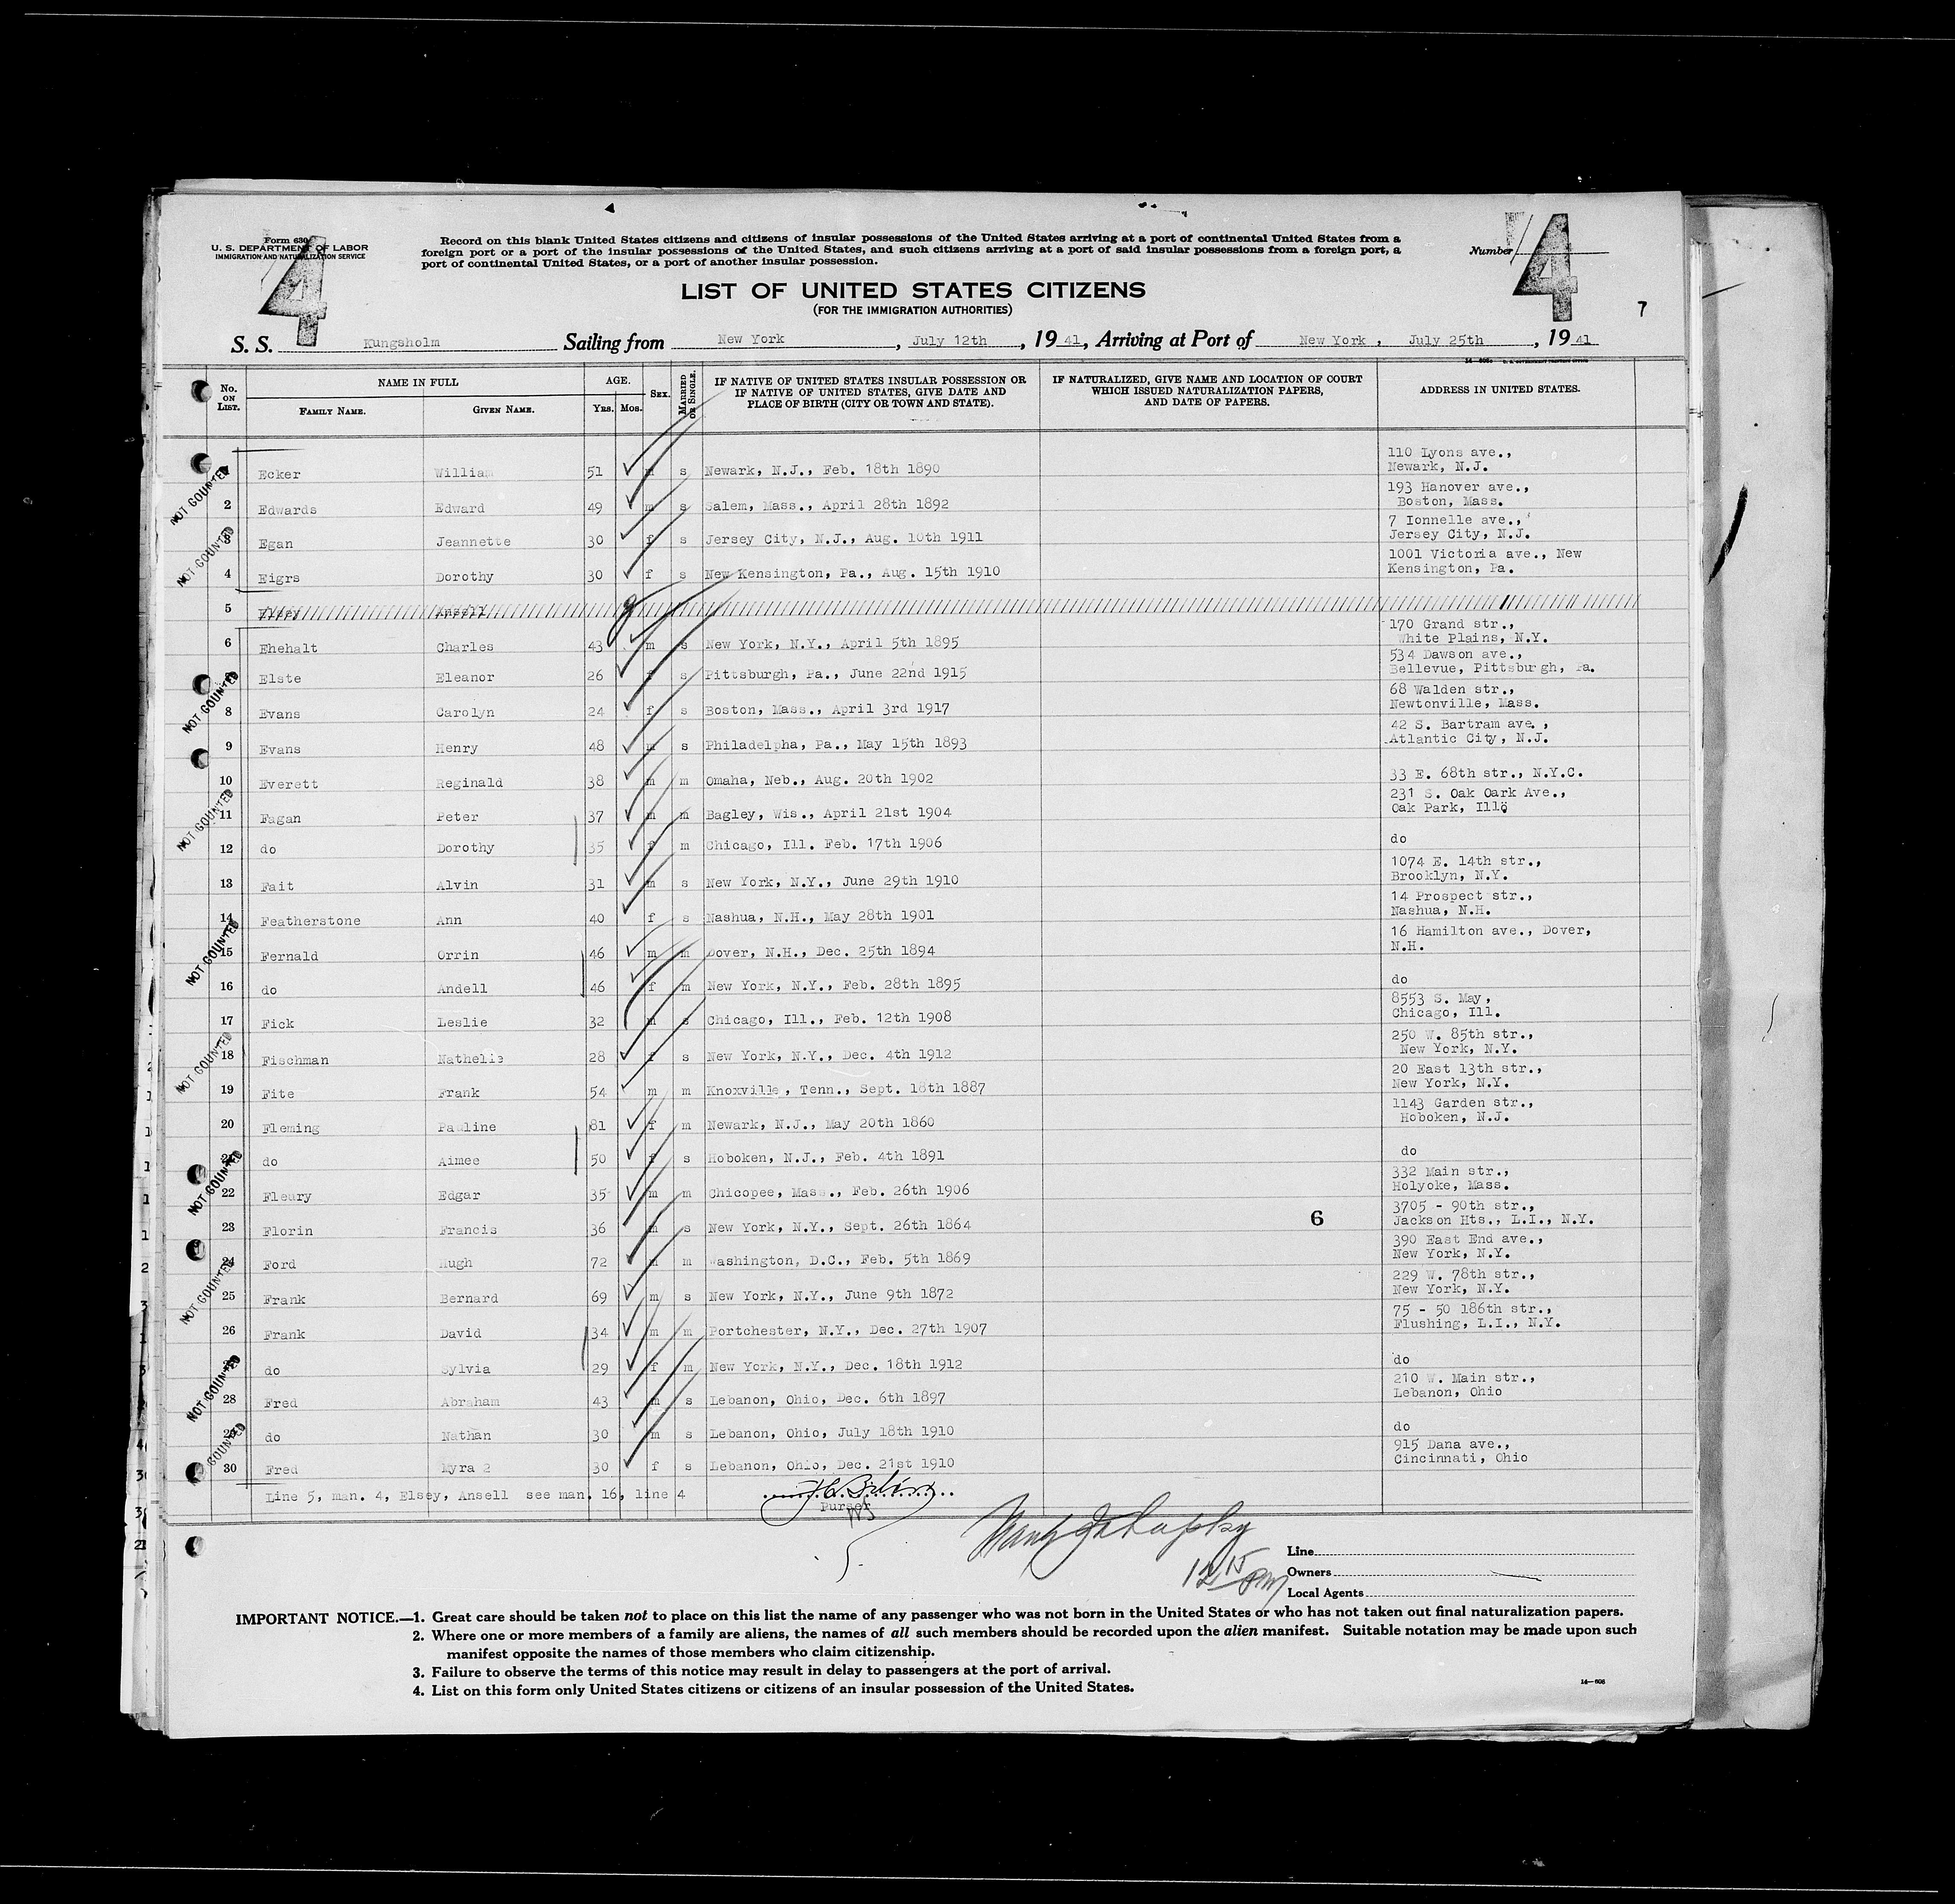 Form 630
U. S. DEPARTMENT OF LABOR
IMMIGRATION AND NATURALIZATION SERVICE
4
Record on this blank United States citizens and citizens of insular possessions of the United States arriving at a port of continental United States from a
foreign port or a port of the insular possessions of the United States, and such citizens arriving at a port of said insular possessions from a foreign port, a
port of continental United States, or a port of another insular possession.
Number 4
7
LIST OF UNITED STATES CITIZENS
(FOR THE IMMIGRATION AUTHORITIES)
S. S. Kungsholm Sailing from New York, July 12th, 1941, Arriving at Port of New York, July 25th, 1941
No. ON LIST. NAME IN FULL AGE. SEX. MARRIED OR SINGLE. IF NATIVE OF UNITED STATES INSULAR POSSESSION OR IF NATIVE OF UNITED STATES, GIVE DATE AND PLACE OF BIRTH (CITY OR TOWN AND STATE). IF NATURALIZED, GIVE NAME AND LOCATION OF COURT WHICH ISSUED NATURALIZATION PAPERS, AND DATE OF PAPERS. ADDRESS IN UNITED STATES.
FAMILY NAME. GIVEN NAME. YRS. MOS.
1 Ecker William 51 m s Newark, N.J., Feb. 18th 1890 110 Lyons ave., Newark, N.J.
NOT COUNTED
2 Edwards Edward 49 m s Salem, Mass., April 28th 1892 193 Hanover ave., Boston, Mass.
3 Egan Jeannette 30 f s Jersey City, N.J., Aug. 10th 1911 7 Ionnelle ave., Jersey City, N.J.
NOT COUNTED
4 Eigrs Dorothy 30 f s New Kensington, Pa., Aug. 15th 1910 1001 Victoria ave., New Kensington, Pa.
5 Elsey Ansell
6 Ehehalt Charles 43 m s New York, N.Y., April 5th 1895 170 Grand str., White Plains, N.Y.
Elste Eleanor 26 f s Pittsburgh, Pa., June 22nd 1915 534 Dawson ave., Bellevue, Pittsburgh, Pa.
NOT COUNTED
8 Evans Carolyn 24 f s Boston, Mass., April 3rd 1917 68 Walden str., Newtonville, Mass.
9 Evans Henry 48 m s Philadelpha, Pa., May 15th 1893 42 S. Bartram ave., Atlantic City, N.J.
10 Everett Reginald 38 m m Omaha, Neb., Aug. 20th 1902 33 E. 68th str., N.Y.C.
NOT COUNTED
11 Fagan Peter 37 m m Bagley, Wis., April 21st 1904 231 S. Oak Oark Ave., Oak Park, Ill
12 do Dorothy 35 f m Chicago, Ill. Feb. 17th 1906 do
13 Fait Alvin 31 m s New York, N.Y., June 29th 1910 1074 E. 14th str., Brooklyn, N.Y.
14 Featherstone Ann 40 f s Nashua, N.H., May 28th 1901 14 Prospect str., Nashua, N.H.
NOT COUNTED
15 Fernald Orrin 46 m m Dover, N.H., Dec. 25th 1894 16 Hamilton ave., Dover, N.H.
16 do Andell 46 f m New York, N.Y., Feb. 28th 1895 do
17 Fick Leslie 32 m s Chicago, Ill., Feb. 12th 1908 8553 S. May, Chicago, Ill.
NOT COUNTED
18 Fischman Nathelie 28 f s New York, N.Y., Dec. 4th 1912 250 W. 85th str., New York, N.Y.
19 Fite Frank 54 m m Knoxville, Tenn., Sept. 18th 1887 20 East 13th str., New York, N.Y.
20 Fleming Pauline 81 f m Newark, N.J., May 20th 1860 1143 Garden str., Hoboken, N.J.
21 do Aimee 50 f s Hoboken, N.J., Feb. 4th 1891 do
NOT COUNTED
22 Fleury Edgar 35 m m Chicopee, Mass., Feb. 26th 1906 332 Main str., Holyoke, Mass.
23 Florin Francis 36 m s New York, N.Y., Sept. 26th 1864 6 3705 - 90th str., Jackson Hts., L.I., N.Y.
24 Ford Hugh 72 m m Washington, D.C., Feb. 5th 1869 390 East End ave., New York, N.Y.
NOT COUNTED
25 Frank Bernard 69 m s New York, N.Y., June 9th 1872 229 W. 78th str., New York, N.Y.
26 Frank David 34 m m Portchester, N.Y., Dec. 27th 1907 75 - 50 186th str., Flushing, L.I., N.Y.
do Sylvia 29 f m New York, N.Y., Dec. 18th 1912 do
NOT COUNTED
28 Fred Abraham 43 m s Lebanon, Ohio, Dec. 6th 1897 210 W. Main str., Lebanon, Ohio
29 do Nathan 30 m s Lebanon, Ohio, July 18th 1910 do
COUNTED
30 Fred Myra 2 30 f s Lebanon, Ohio, Dec. 21st 1910 915 Dana ave., Cincinnati, Ohio
Line 5, man. 4, Elsey, Ansell see man. 16, line 4
Purser
12 15 PM
Line
Owners
Local Agents
IMPORTANT NOTICE.—1. Great care should be taken not to place on this list the name of any passenger who was not born in the United States or who has not taken out final naturalization papers.
2. Where one or more members of a family are aliens, the names of all such members should be recorded upon the alien manifest. Suitable notation may be made upon such
manifest opposite the names of those members who claim citizenship.
3. Failure to observe the terms of this notice may result in delay to passengers at the port of arrival.
4. List on this form only United States citizens or citizens of an insular possession of the United States.
14—608